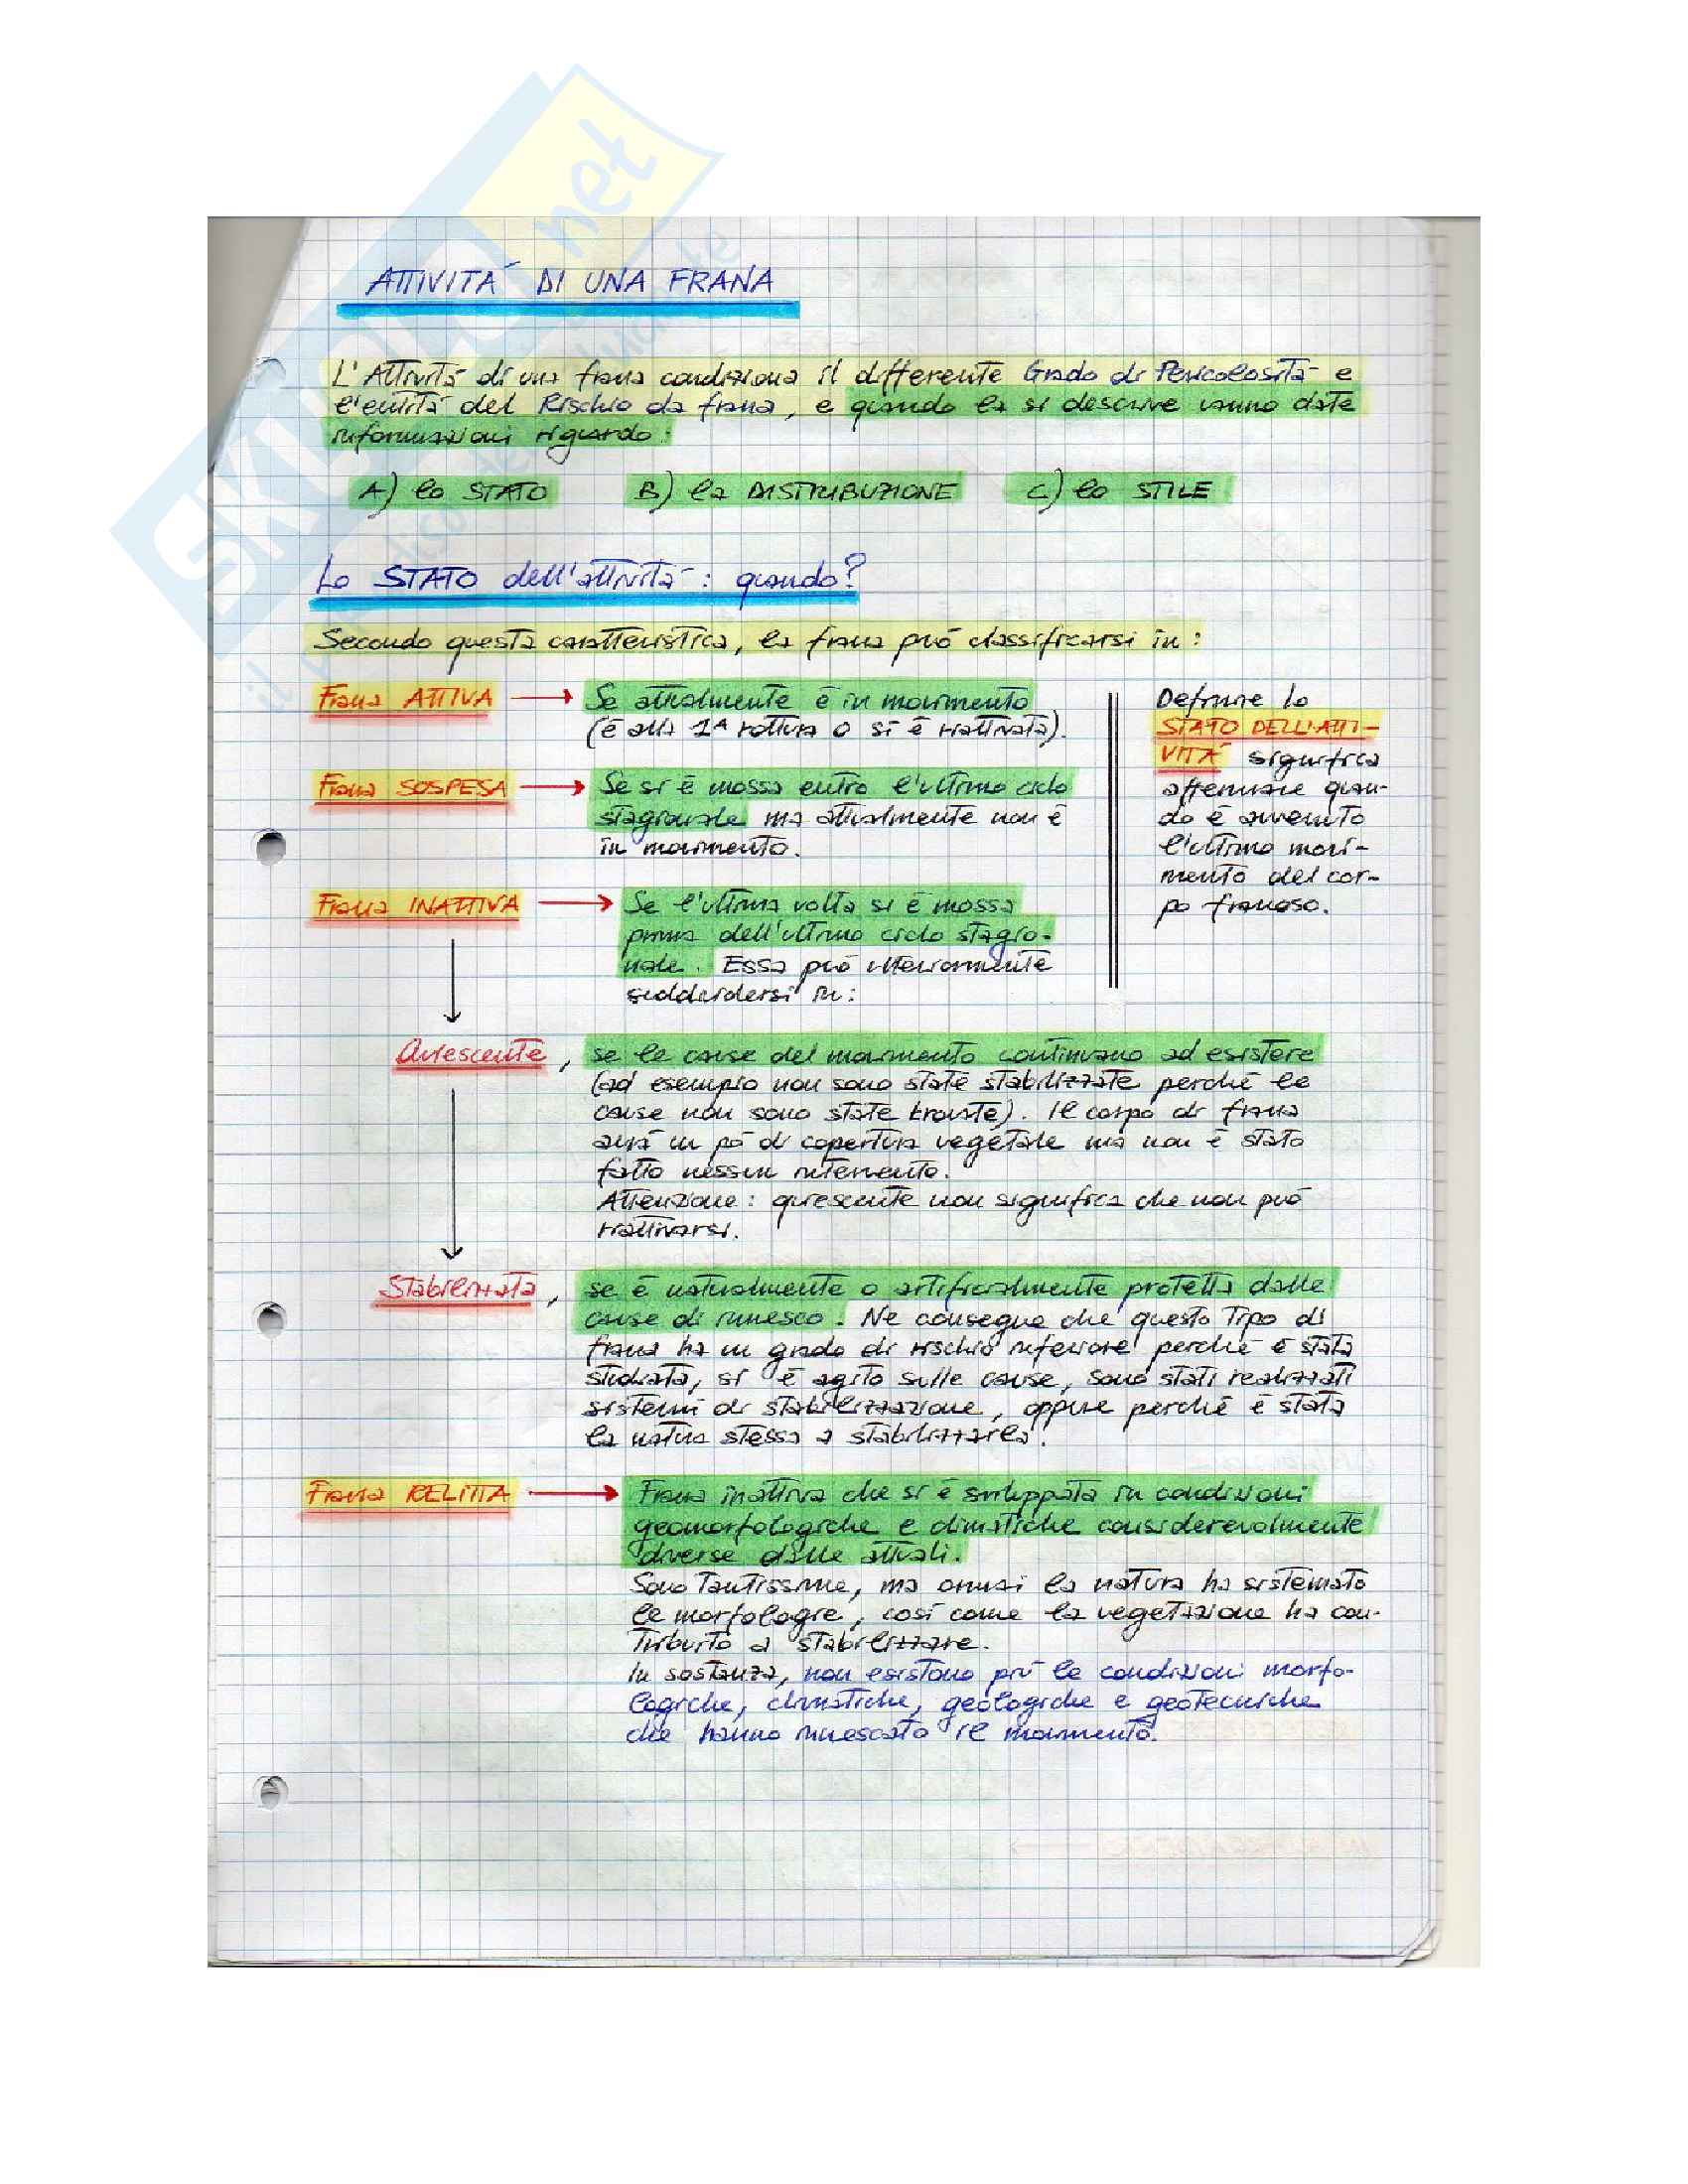 SKUOLA.net
ATTIVITÀ DI UNA FRANA
L'Attività di una frana condiziona il differente Grado di Pericolosità e
l'entità del Rischio da frana, e quando la si descrive vanno date
informazioni riguardo:
A) lo STATO B) la DISTRIBUZIONE C) lo STILE
Lo STATO dell'attività: quando?
Secondo questa caratteristica, la frana può classificarsi in:
Frana ATTIVA → Se attualmente è in movimento
(è alla 1ª rottura o si è riattivata).
Frana SOSPESA → Se si è mossa entro l'ultimo ciclo
stagionale ma attualmente non è
in movimento.
Frana INATTIVA → Se l'ultima volta si è mossa
prima dell'ultimo ciclo stagio-
nale. Essa può ulteriormente
suddividersi in:
Definire lo
STATO DELL'ATTI-
VITÀ significa
affermare quan-
do è avvenuto
l'ultimo movi-
mento del cor-
po franoso.
Quiescente, se le cause del movimento continuano ad esistere
(ad esempio non sono state stabilizzate perché le
cause non sono state trovate). Il corpo di frana
avrà un pò di copertura vegetale ma non è stato
fatto nessun intervento.
Attenzione: quiescente non significa che non può
riattivarsi.
Stabilizzata, se è naturalmente o artificialmente protetta dalle
cause di innesco. Ne consegue che questo tipo di
frana ha un grado di rischio inferiore perché è stata
studiata, si è agito sulle cause, sono stati realizzati
sistemi di stabilizzazione, oppure perché è stata
la natura stessa a stabilizzarla.
Frana RELITTA → Frana inattiva che si è sviluppata in condizioni
geomorfologiche e climatiche considerevolmente
diverse dalle attuali.
Sono tantissime, ma ormai la natura ha sistemato
le morfologie, così come la vegetazione ha con-
tribuito a stabilizzare.
In sostanza, non esistono più le condizioni morfo-
logiche, climatiche, geologiche e geotecniche
che hanno innescato il movimento.